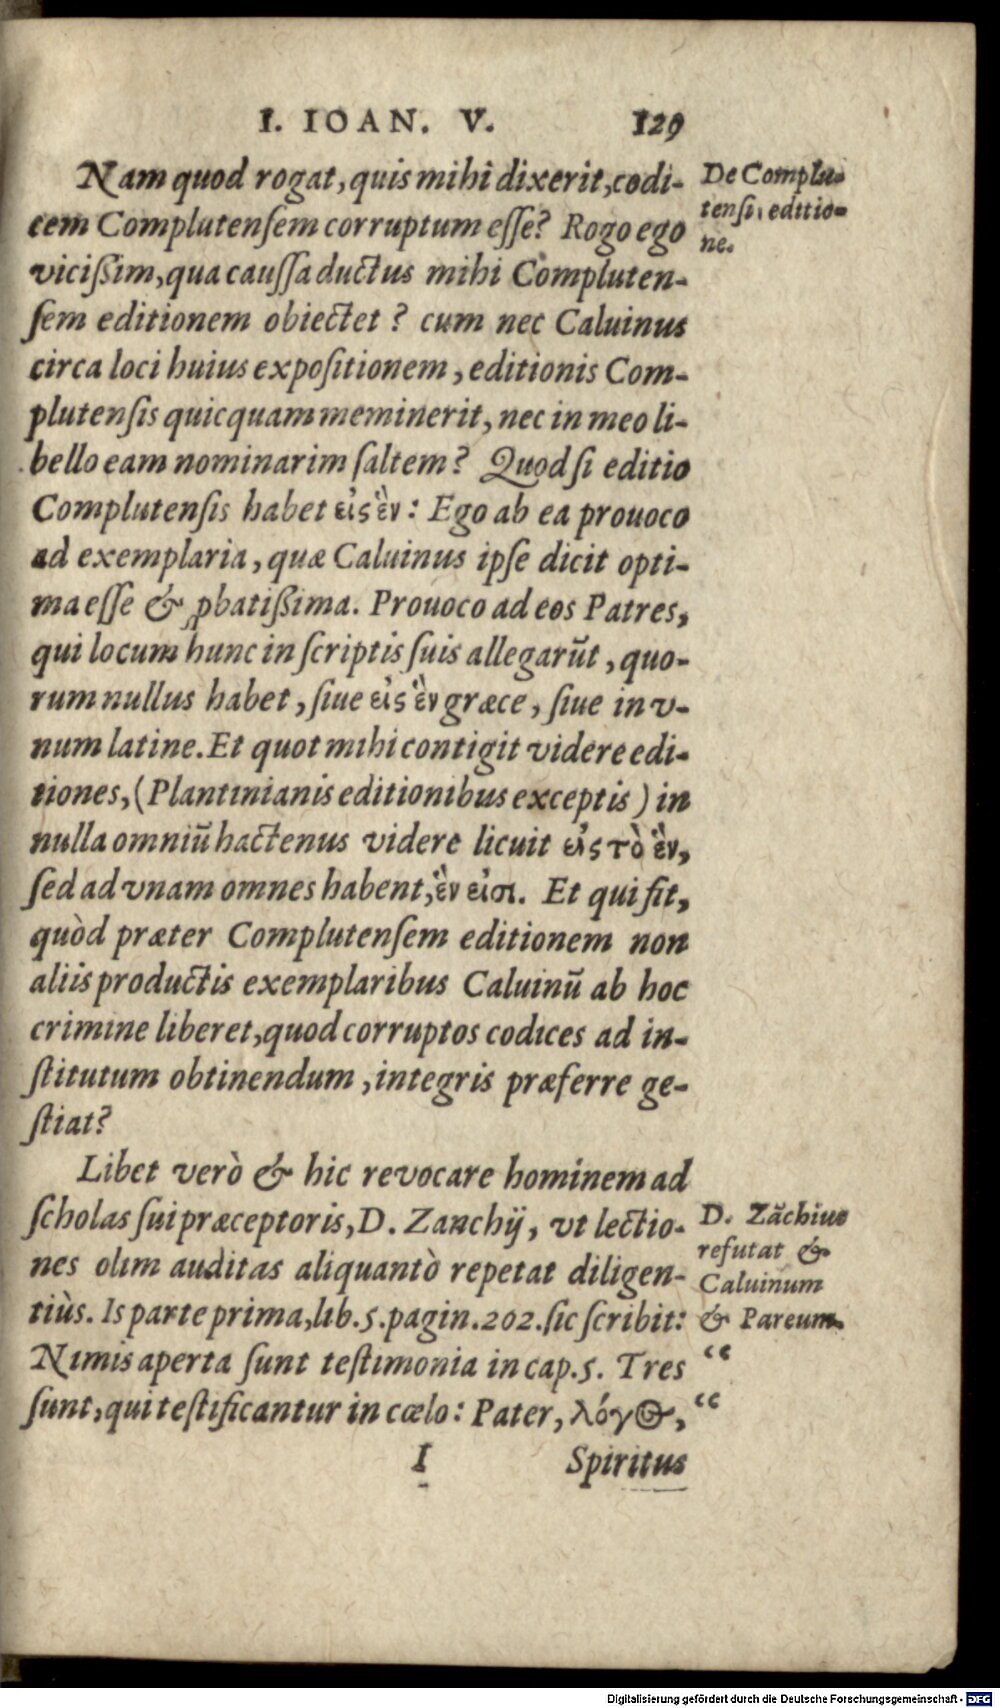 I. IOAN. V. 129
Nam quod rogat, quis mihi dixerit, codi-
cem Complutenſem corruptum eſſe? Rogo ego
viciſsim, qua cauſſa ductus mihi Compluten-
ſem editionem obiectet? cum nec Caluinus
circa loci huius expoſitionem, editionis Com-
plutenſis quicquam meminerit, nec in meo li-
bello eam nominarim ſaltem? Quod ſi editio
Complutenſis habet εἰς ἓν: Ego ab ea prouoco
ad exemplaria, quæ Caluinus ipſe dicit opti-
ma eſſe & ꝓbatiſsima. Prouoco ad eos Patres,
qui locum hunc in ſcriptis ſuis allegarūt, quo-
rum nullus habet, ſiue εἰς ἓν græce, ſiue in v-
num latine. Et quot mihi contigit videre edi-
tiones, (Plantinianis editionibus exceptis) in
nulla omniū hactenus videre licuit εἰς τὸ ἓν,
ſed ad vnam omnes habent, ἓν εἰσι. Et qui fit,
quòd præter Complutenſem editionem non
aliis productis exemplaribus Caluinū ab hoc
crimine liberet, quod corruptos codices ad in-
ſtitutum obtinendum, integris præferre ge-
ſtiat?
Libet verò & hic revocare hominem ad
ſcholas ſui præceptoris, D. Zanchij, vt lectio-
nes olim auditas aliquantò repetat diligen-
tiùs. Is parte prima, lib. 5. pagin. 202. ſic ſcribit:
Nimis aperta ſunt teſtimonia in cap. 5. Tres
ſunt, qui teſtificantur in cœlo: Pater, λόγος,
I Spiritus
De Complu-
tenſi, editio-
ne.
D. Zāchius
refutat &
Caluinum
& Pareum.
“
“
Digitalisierung gefördert durch die Deutsche Forschungsgemeinschaft - DFG